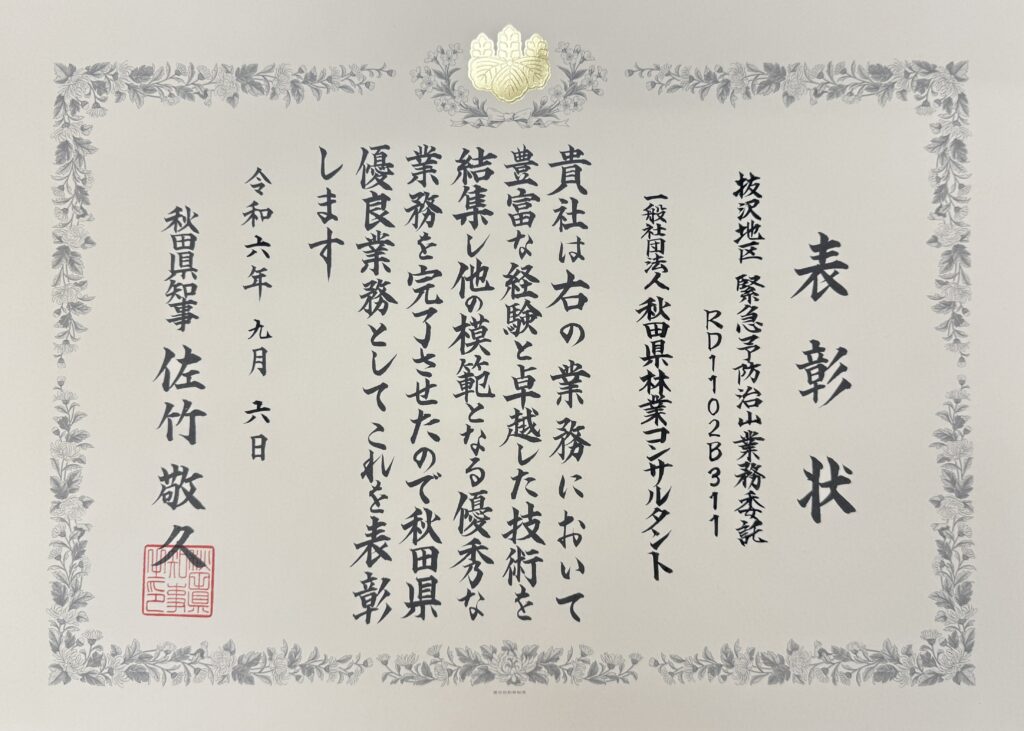 表彰状
抜沢地区 緊急予防治山業務委託
RD1102B311
一般社団法人 秋田県林業コンサルタント
貴社は右の業務において
豊富な経験と卓越した技術を
結集し他の模範となる優秀な
業務を完了させたので秋田県
優良業務としてこれを表彰
します
令和六年 九月 六日
秋田県知事 佐竹敬久